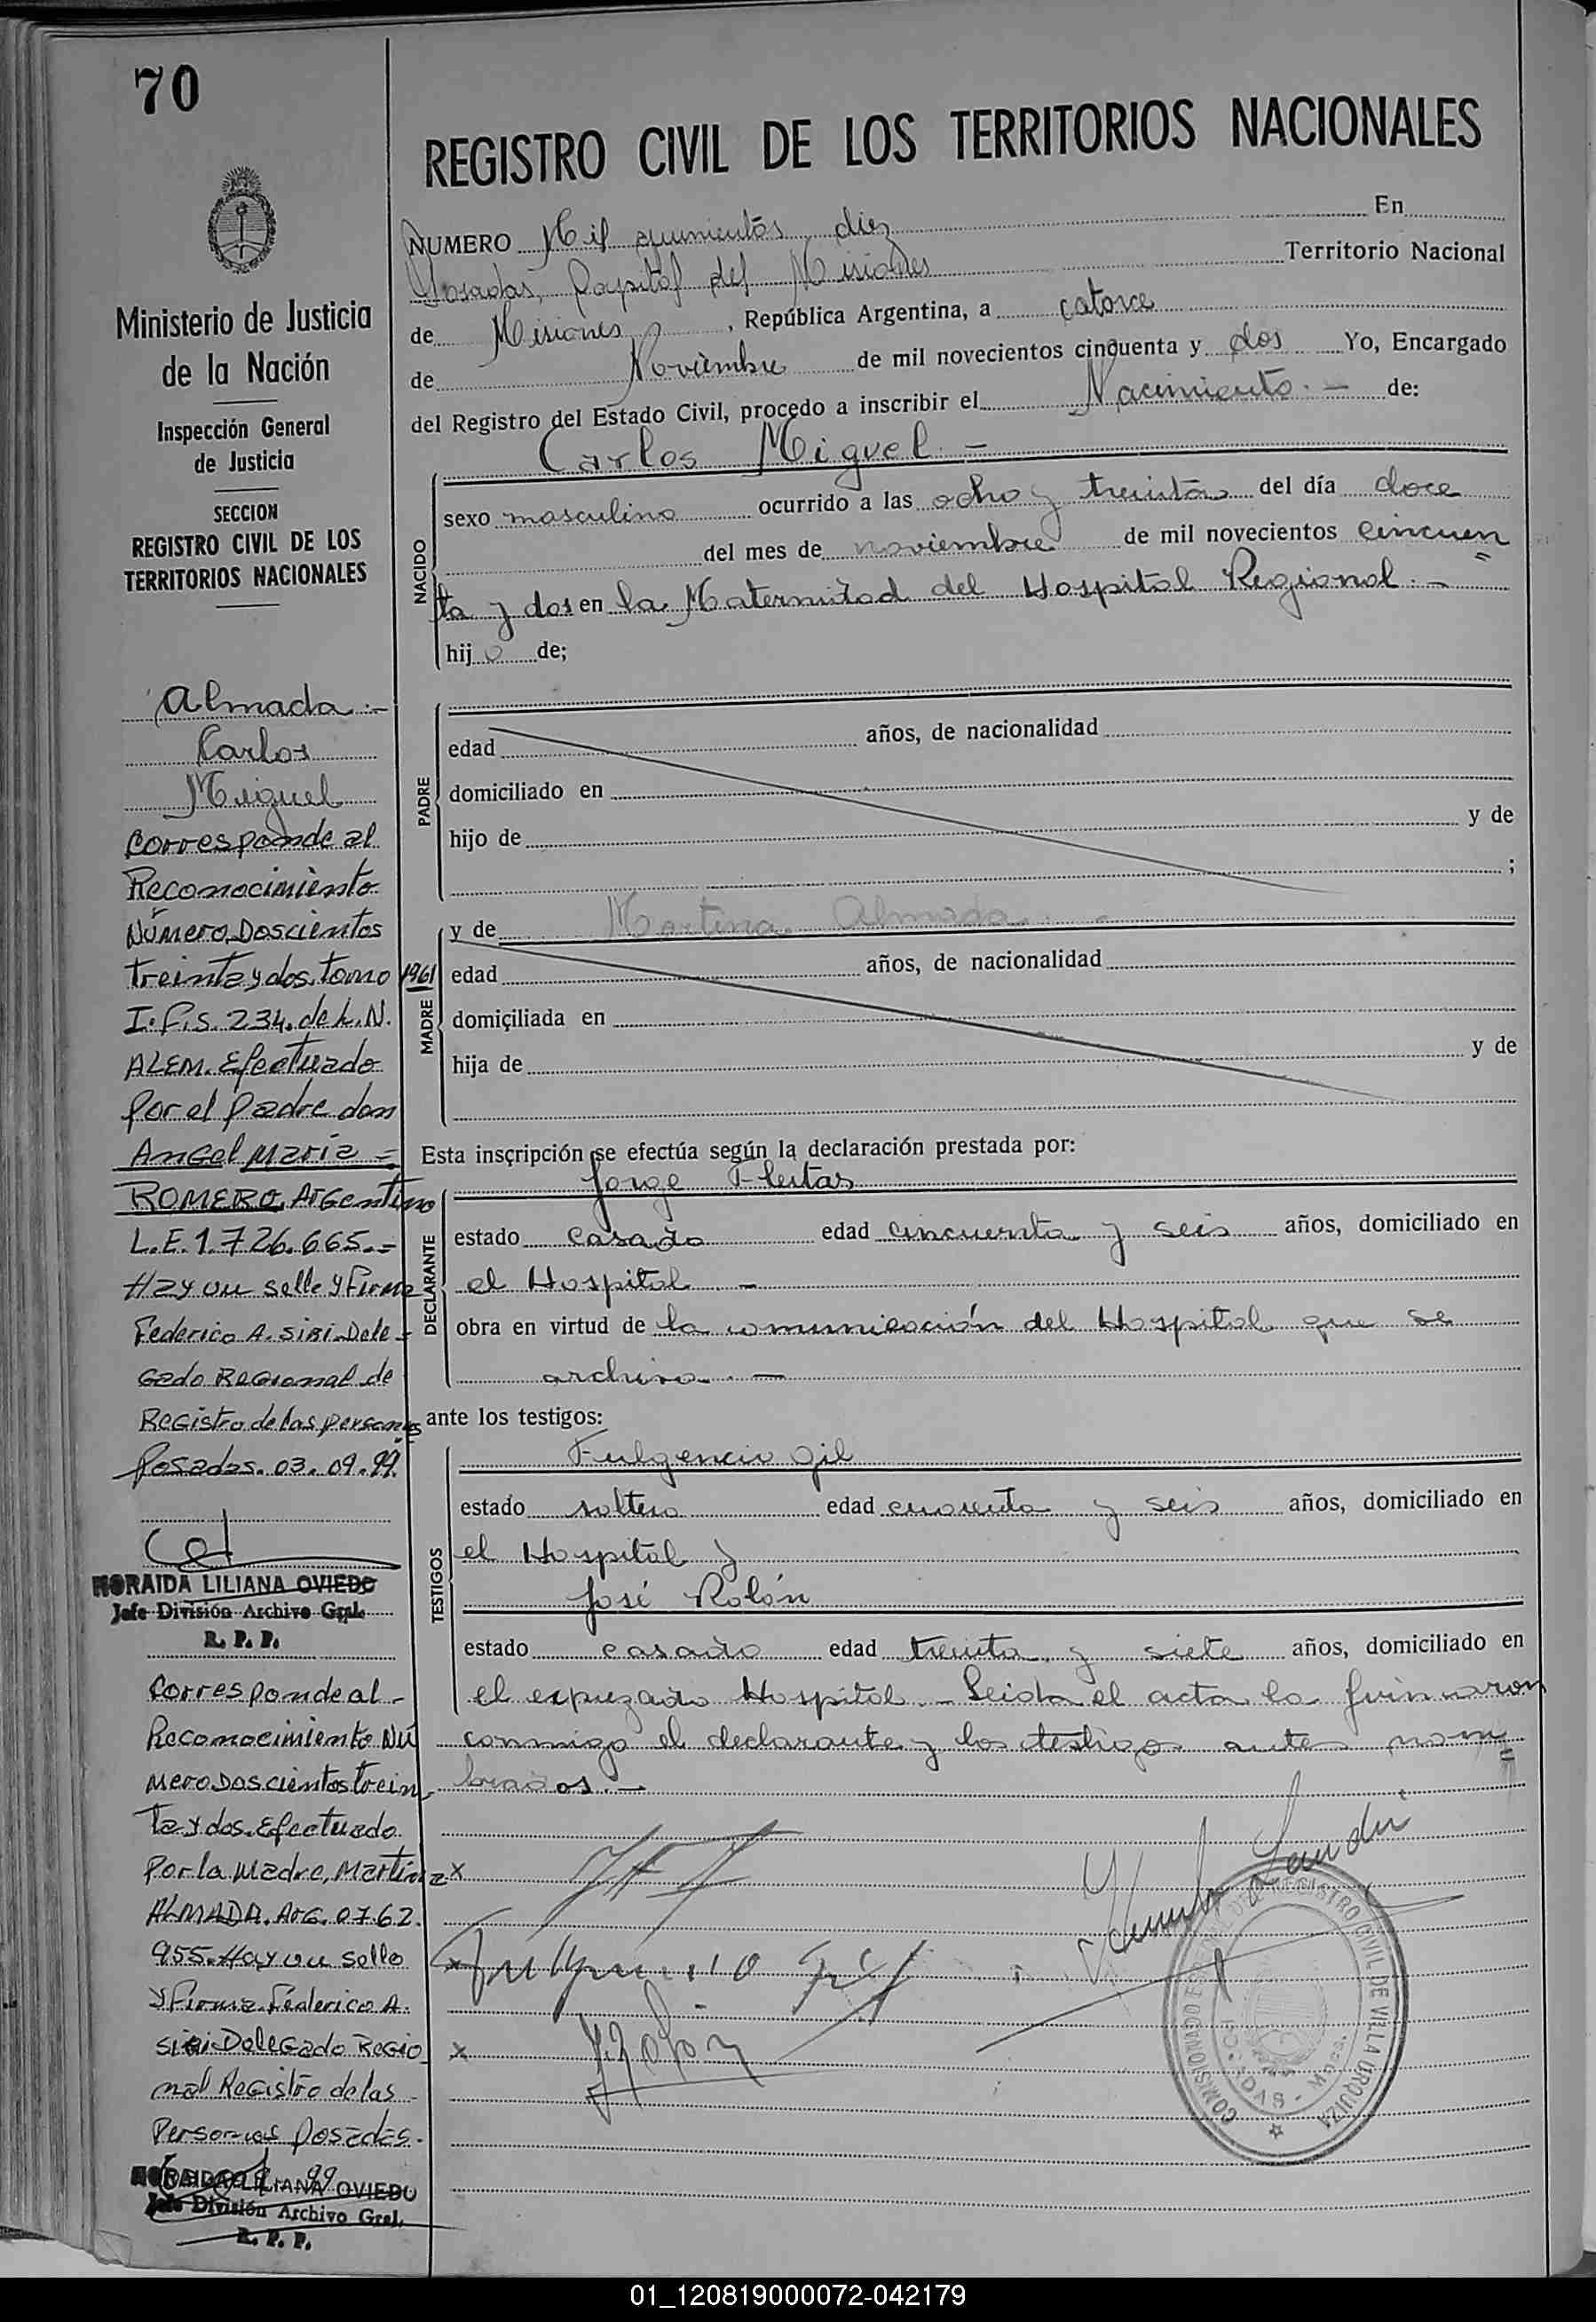 70
Ministerio de Justicia
de la Nación
Inspección General
de Justicia
SECCION
REGISTRO CIVIL DE LOS
TERRITORIOS NACIONALES
Almada.-
Carlos
Miguel
Corresponde al
Reconocimiento
Número, Doscientos
Treinta y dos. tomo 1961
I. f.s. 234. de L.N.
ALEM. Efectuado
por el padre don
Angel María =
ROMERO, Argentino
L.E. 1.726.665.=
Hay un sello y Firma
Federico A. Siri-Dele-
gado Regional de
Registro de las personas
Posadas. 03. 09. 99.
NORAIDA LILIANA OVIEDO
Jefe División Archivo Gral.
R. P. P.
Corresponde al
Reconocimiento Nú
mero Doscientos trein
ta y dos. Efectuado
Por la Madre, Martina
ALMADA. Arg. 0.7.62.
955. Hay un sello
y Firma. Federico A.
Siri Delegado Regio
nal Registro de las
Personas Posadas.
99
NORAIDA LILIANA OVIEDO
Jefe División Archivo Gral.
R. P. P.
REGISTRO CIVIL DE LOS TERRITORIOS NACIONALES
NUMERO Mil quinientos diez En
Posadas, Capital del Misiones Territorio Nacional
de Misiones, República Argentina, a catorce
de Noviembre de mil novecientos cinquenta y dos Yo, Encargado
del Registro del Estado Civil, procedo a inscribir el Nacimiento.- de:
Carlos Miguel.-
NACIDO
sexo masculino ocurrido a las ocho y treinta del día doce
del mes de noviembre de mil novecientos cincuen
ta y dos en la Maternidad del Hospital Regional.-
hijo de;
PADRE
edad años, de nacionalidad
domiciliado en
hijo de y de
;
MADRE
y de Martina Almada.-
edad años, de nacionalidad
domiçiliada en
hija de y de
Esta insçripción se efectúa según la declaración prestada por:
DECLARANTE
Jorge Fleitas
estado casado edad cincuenta y seis años, domiciliado en
el Hospital.-
obra en virtud de la comunicación del Hospital que se
archiva.-
ante los testigos:
TESTIGOS
Fulgencio Gil
estado soltero edad cuarenta y seis años, domiciliado en
el Hospital y
José Rolón
estado casado edad treinta y siete años, domiciliado en
el expuzado Hospital.- Leida el acta la firmaron
conmigo el declarante y los testigos antes nom=
brados.-
x
x Fulgencio Gil
x J. Rolón
REGISTRO CIVIL DE VILLA URQUIZA
01_120819000072-042179